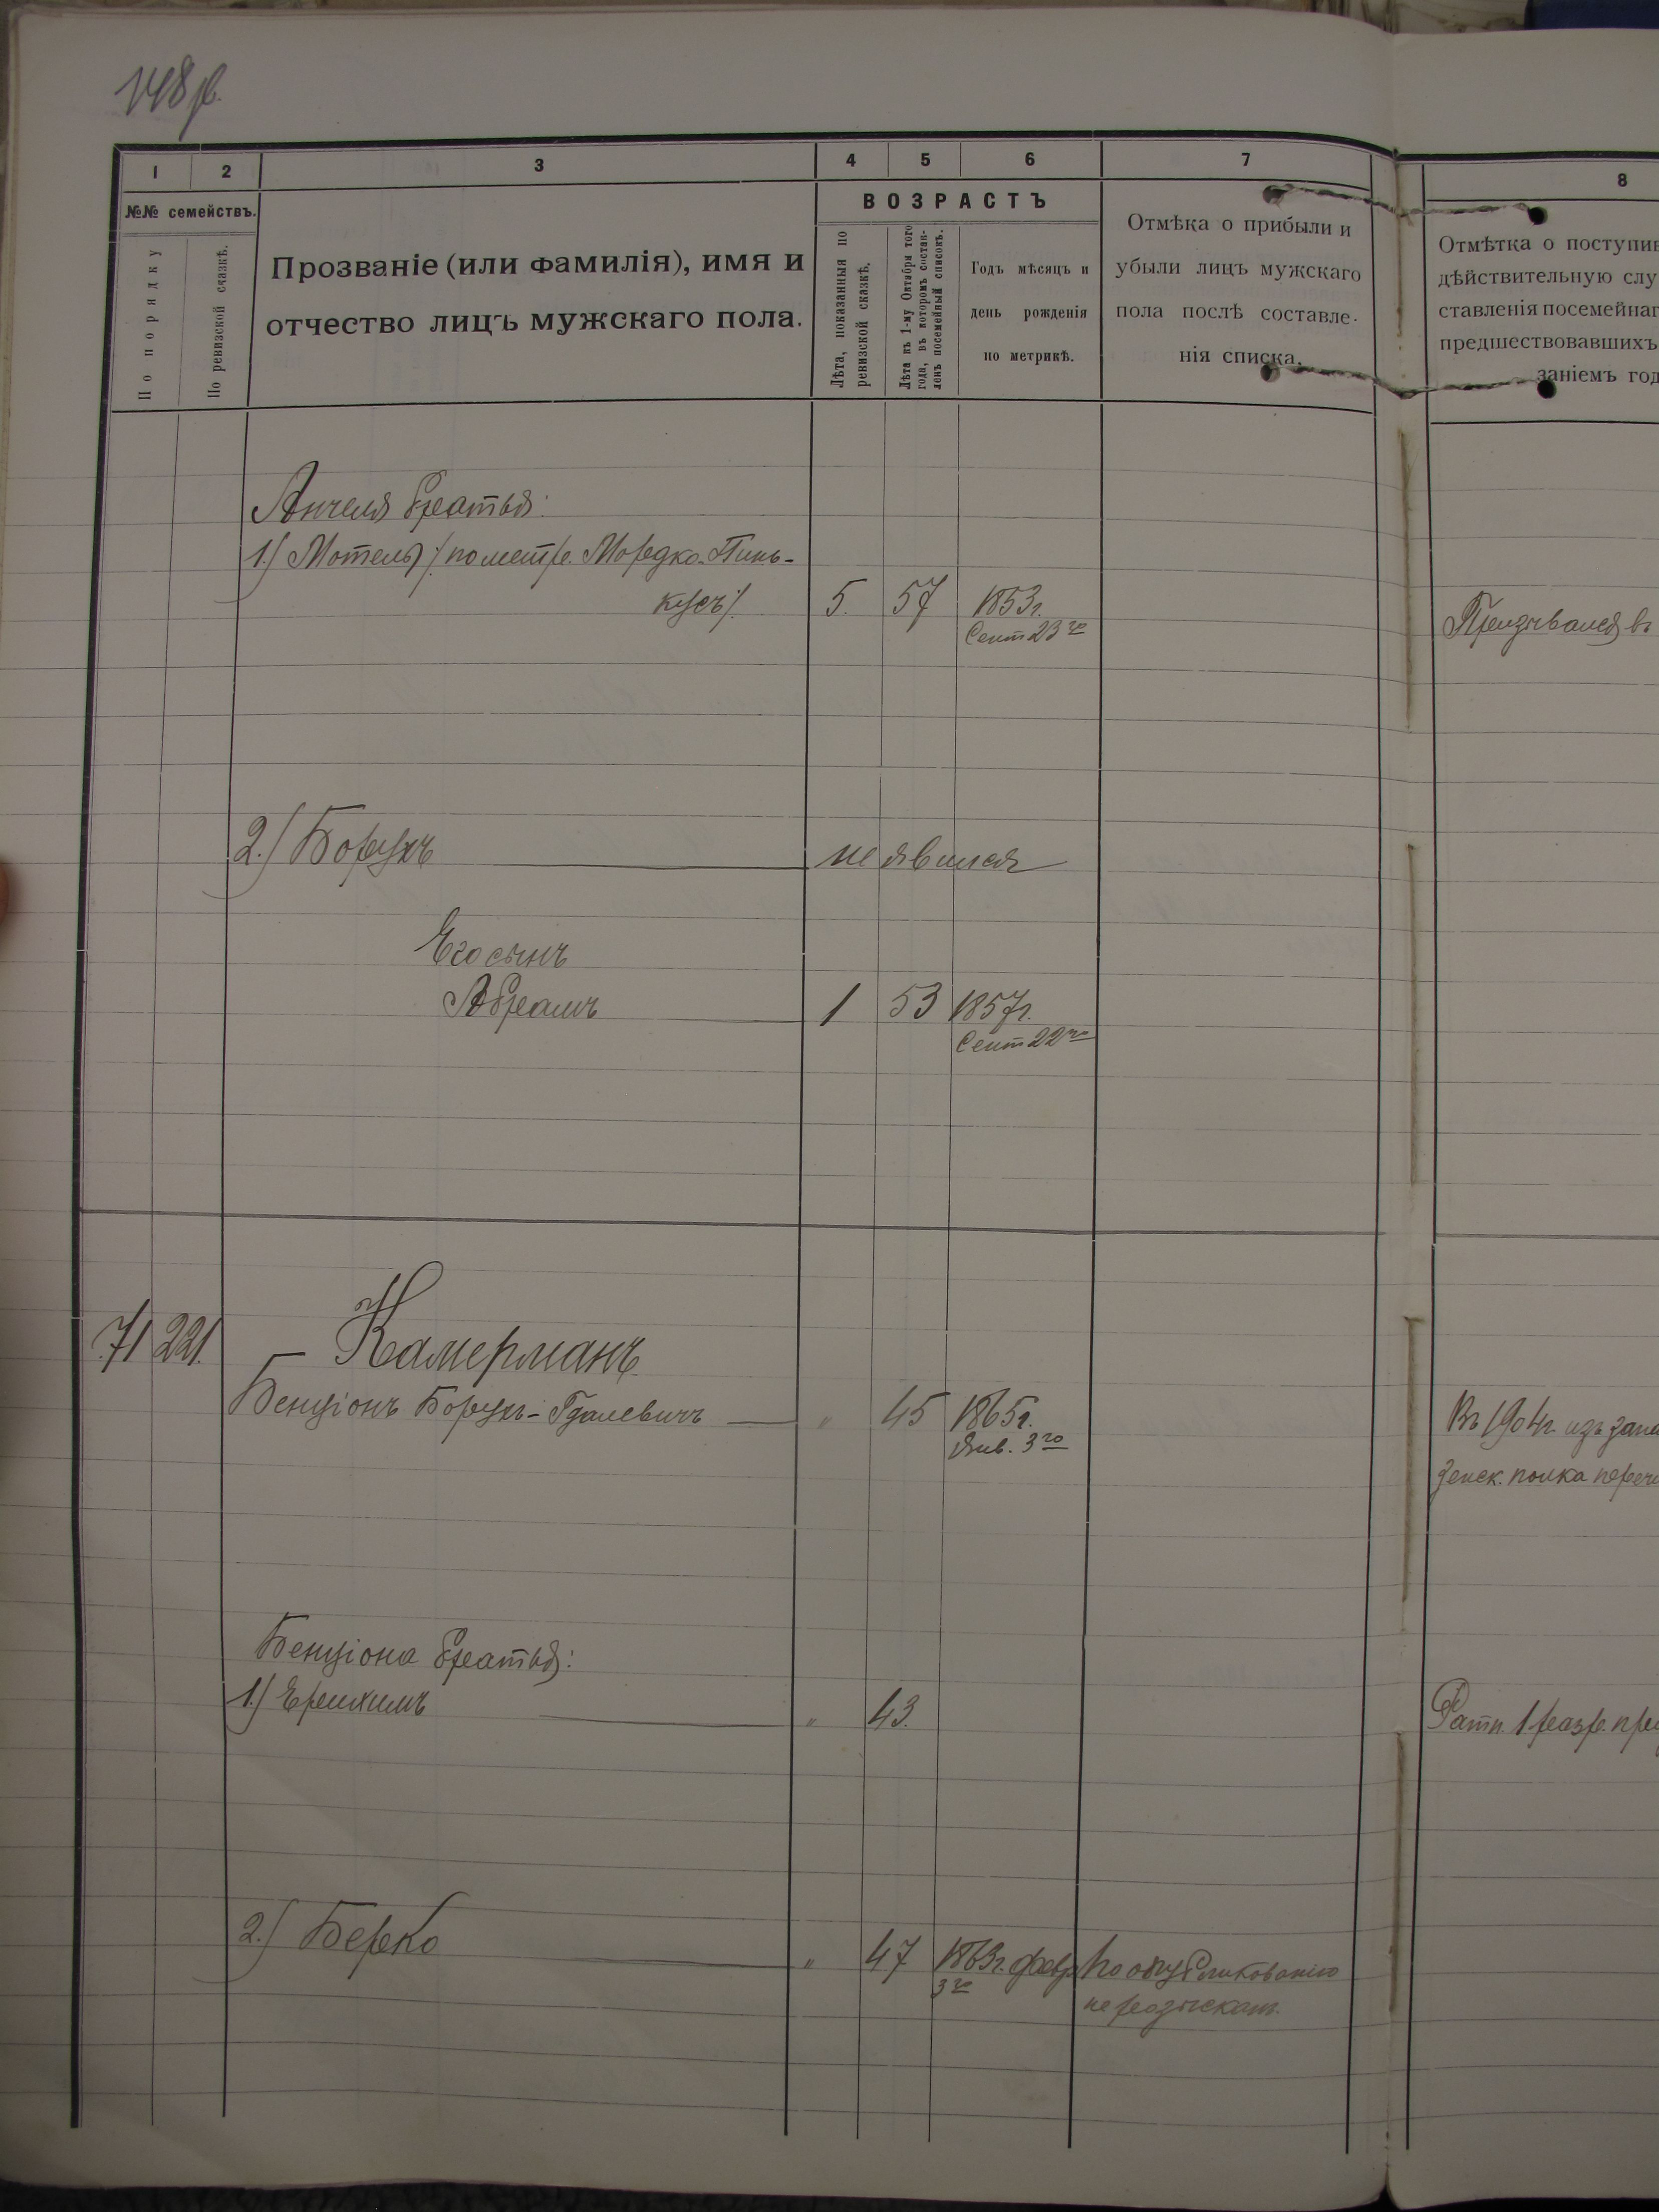 148 р.
1 2 3 4 5 6 7 8
№№ семействъ.
По порядку
По ревизской сказкѣ.
Прозваніе (или фамилія), имя и
отчество лицъ мужскаго пола.
ВОЗРАСТЪ
Лѣта, показанныя по
ревизской сказкѣ.
Лѣта къ 1-му Октября того
года, въ которомъ состав-
ленъ посемейный списокъ.
Годъ мѣсяцъ и
день рожденія
по метрикѣ.
Отмѣка о прибыли и
убыли лицъ мужскаго
пола послѣ составле-
нія списка.
Отмѣтка о поступив
дѣйствительную слу
ставленія посемейнаг
предшествовавшихъ
заніемъ год
Анчеля братья:
1.) Мотель /: по метр. Мордко-Пинь-
кусъ :/. 5. 57 1853г.
Сент 23го
Призывался въ
2.) Борухъ не явился
Его сынъ
Абрамъ 1 53 1857г.
Сент 22го
71 221. Камерманъ
Бенціонъ Борухъ-Гдалевичъ " 45 1865г.
Янв. 3го
Въ 1904г. изъ запа
зенск. полка переч
Бенціона братья:
1.) Ерихимъ " 43.
Ратн. 1 разр. при
2.) Берко " 47 1863г. февр По опубликованію
3го не розыскан.